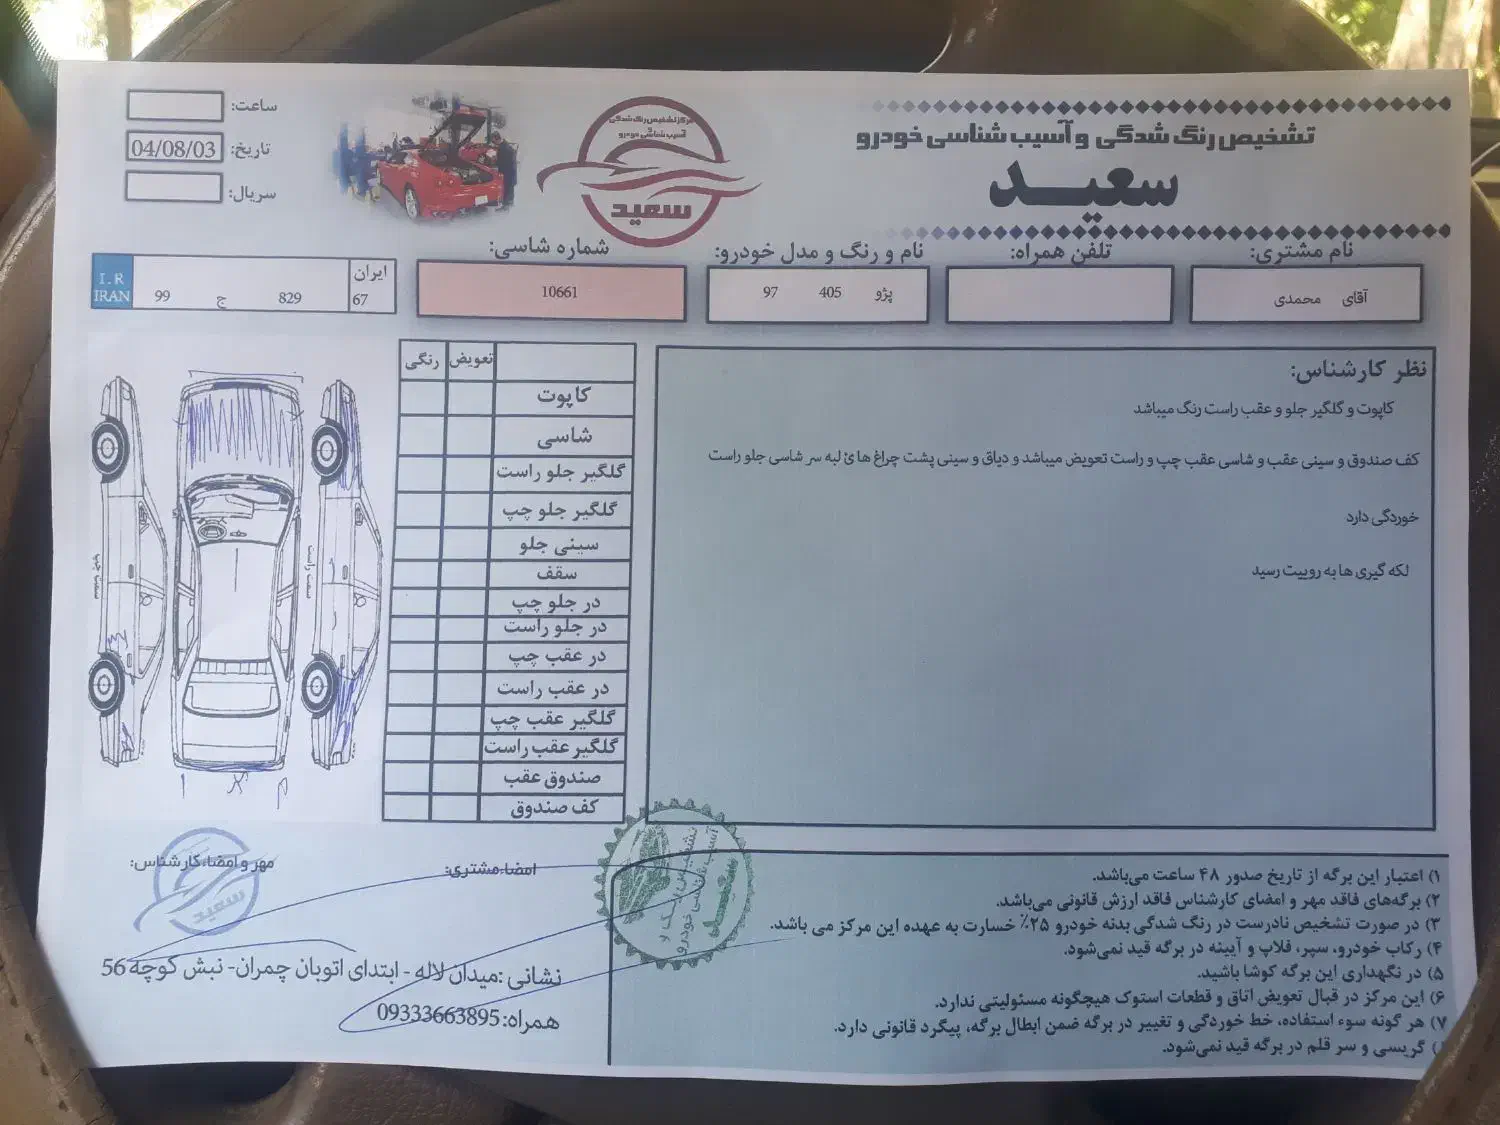 تشخیص رنگ شدگی و آسیب شناسی خودرو
سعید
مرکز تشخیص رنگ شدگی
و
آسیب شناسی خودرو
سعید
ساعت:
تاریخ: 04/08/03
سریال:
نام مشتری: آقای محمدی
تلفن همراه:
نام و رنگ و مدل خودرو: پژو 405 97
شماره شاسی: 10661
ایران 67 829 ج 99 I.R IRAN
نظر کارشناس:
کاپوت و گلگیر جلو و عقب راست رنگ میباشد
کف صندوق و سینی عقب و شاسی عقب چپ و راست تعویض میباشد و دیاق و سینی پشت چراغ ها ئ لبه سر شاسی جلو راست
خوردگی دارد
لکه گیری ها به روییت رسید
تعویض رنگی
کاپوت
شاسی
گلگیر جلو راست
گلگیر جلو چپ
سینی جلو
سقف
در جلو چپ
در جلو راست
در عقب چپ
در عقب راست
گلگیر عقب چپ
گلگیر عقب راست
صندوق عقب
کف صندوق
سمت راست
سمت چپ
۱) اعتبار این برگه از تاریخ صدور ۴۸ ساعت می‌باشد.
۲) برگه‌های فاقد مهر و امضای کارشناس فاقد ارزش قانونی می‌باشد.
۳) در صورت تشخیص نادرست در رنگ شدگی بدنه خودرو ۲۵٪ خسارت به عهده این مرکز می باشد.
۴) رکاب خودرو، سپر، فلاپ و آیینه در برگه قید نمی‌شود.
۵) در نگهداری این برگه کوشا باشید.
۶) این مرکز در قبال تعویض اتاق و قطعات استوک هیچگونه مسئولیتی ندارد.
۷) هر گونه سوء استفاده، خط خوردگی و تغییر در برگه ضمن ابطال برگه، پیگرد قانونی دارد.
) گریسی و سر قلم در برگه قید نمی‌شود.
امضاء مشتری:
مهر و امضاء کارشناس:
سعید
تشخیص رنگ و
آسیب شناسی خودرو
سعید
نشانی :میدان لاله - ابتدای اتوبان چمران- نبش کوچه 56
همراه: 09333663895